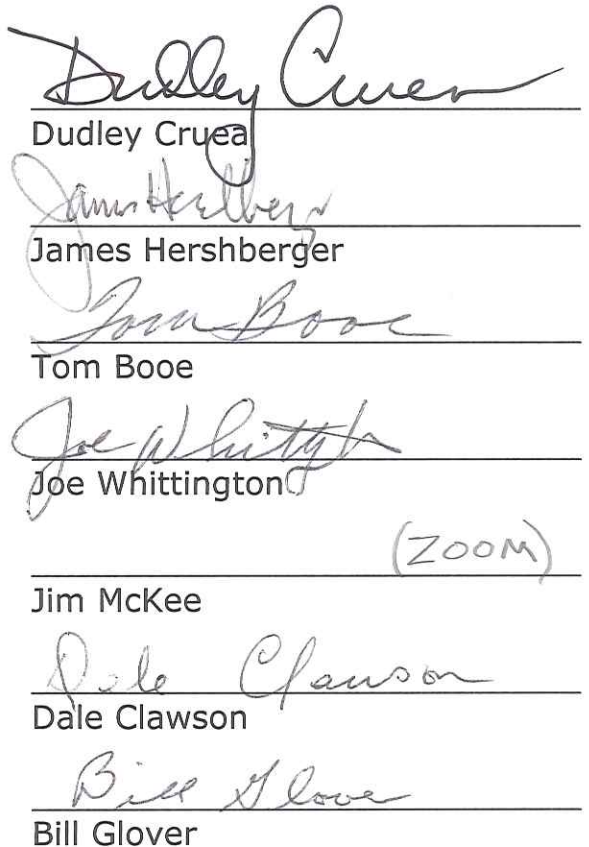 Dudley Cruea
Dudley Cruea
James Hershberger
James Hershberger
Tom Booe
Tom Booe
Joe Whittington
Joe Whittington
(ZOOM)
Jim McKee
Dale Clawson
Dale Clawson
Bill Glover
Bill Glover